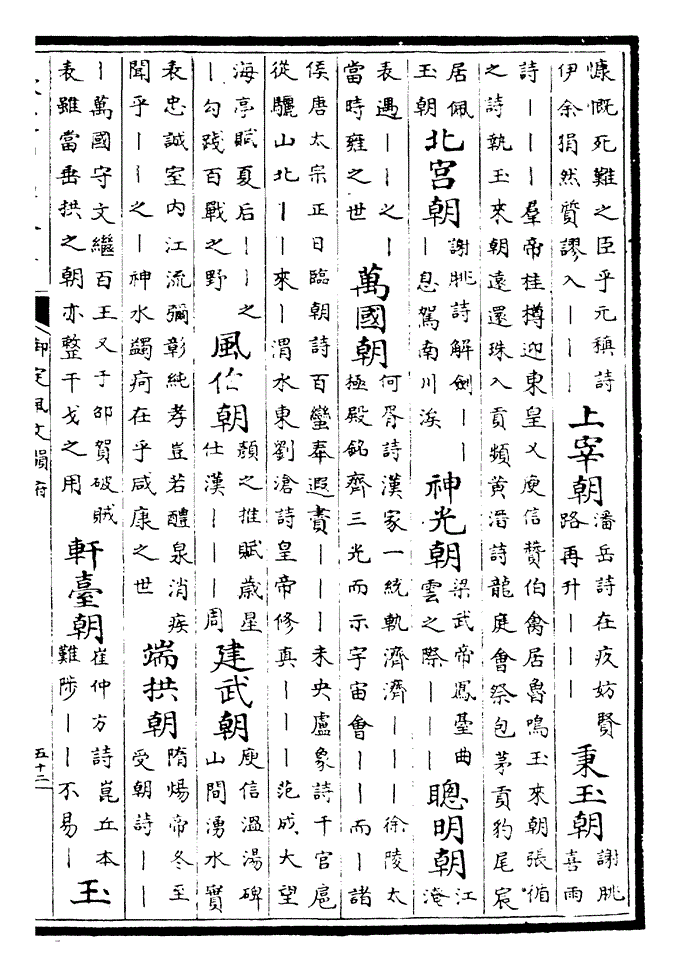 慷慨死難之臣乎元稹詩
伊余狷然質謬入｜｜｜
上宰朝
潘岳詩在疚妨賢
路再升｜｜｜
秉玉朝
謝朓
喜雨
詩｜｜｜羣帝桂樽迎東皇又庾信贊伯禽居魯鳴玉來朝張循
之詩執玉來朝遠還珠入貢頻黃滔詩龍庭會祭包茅貢豹尾宸
居佩
玉朝
北宮朝
謝朓詩解劍｜｜
｜息駕南川涘
神光朝
梁武帝鳳臺曲
雲之際｜｜｜
聰明朝
江
淹
表遇｜｜之｜
當時雍之世
萬國朝
何胥詩漢家一統軌濟濟｜｜｜徐陵太
極殿銘齊三光而示宇宙會｜｜而｜諸
侯唐太宗正日臨朝詩百蠻奉遐賮｜｜｜未央盧象詩千官扈
從驪山北｜｜來｜渭水東劉滄詩皇帝修真｜｜｜范成大望
海亭賦夏后｜｜之
｜勾踐百戰之野
風伯朝
顏之推賦歲星
仕漢｜｜｜周
建武朝
庾信溫湯碑
山間湧水實
表忠誠室内江流彌彰純孝豈若醴泉消疾
聞乎｜｜之｜神水蠲疴在乎咸康之世
端拱朝
隋煬帝冬至
受朝詩｜｜
｜萬國守文繼百王又于邵賀破賊
表雖當垂拱之朝亦整干戈之用
軒臺朝
崔仲方詩崑丘本
難陟｜｜不易｜
玉
御定佩文韻府
五十二